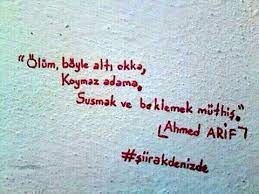 "Ölüm, böyle altı okka,
Koymaz adama,
Susmak ve beklemek müthiş."
Ahmed ARİF
#şiirakdenizde